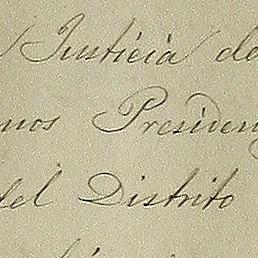 Justicia de
mos Presiden
del Distrito